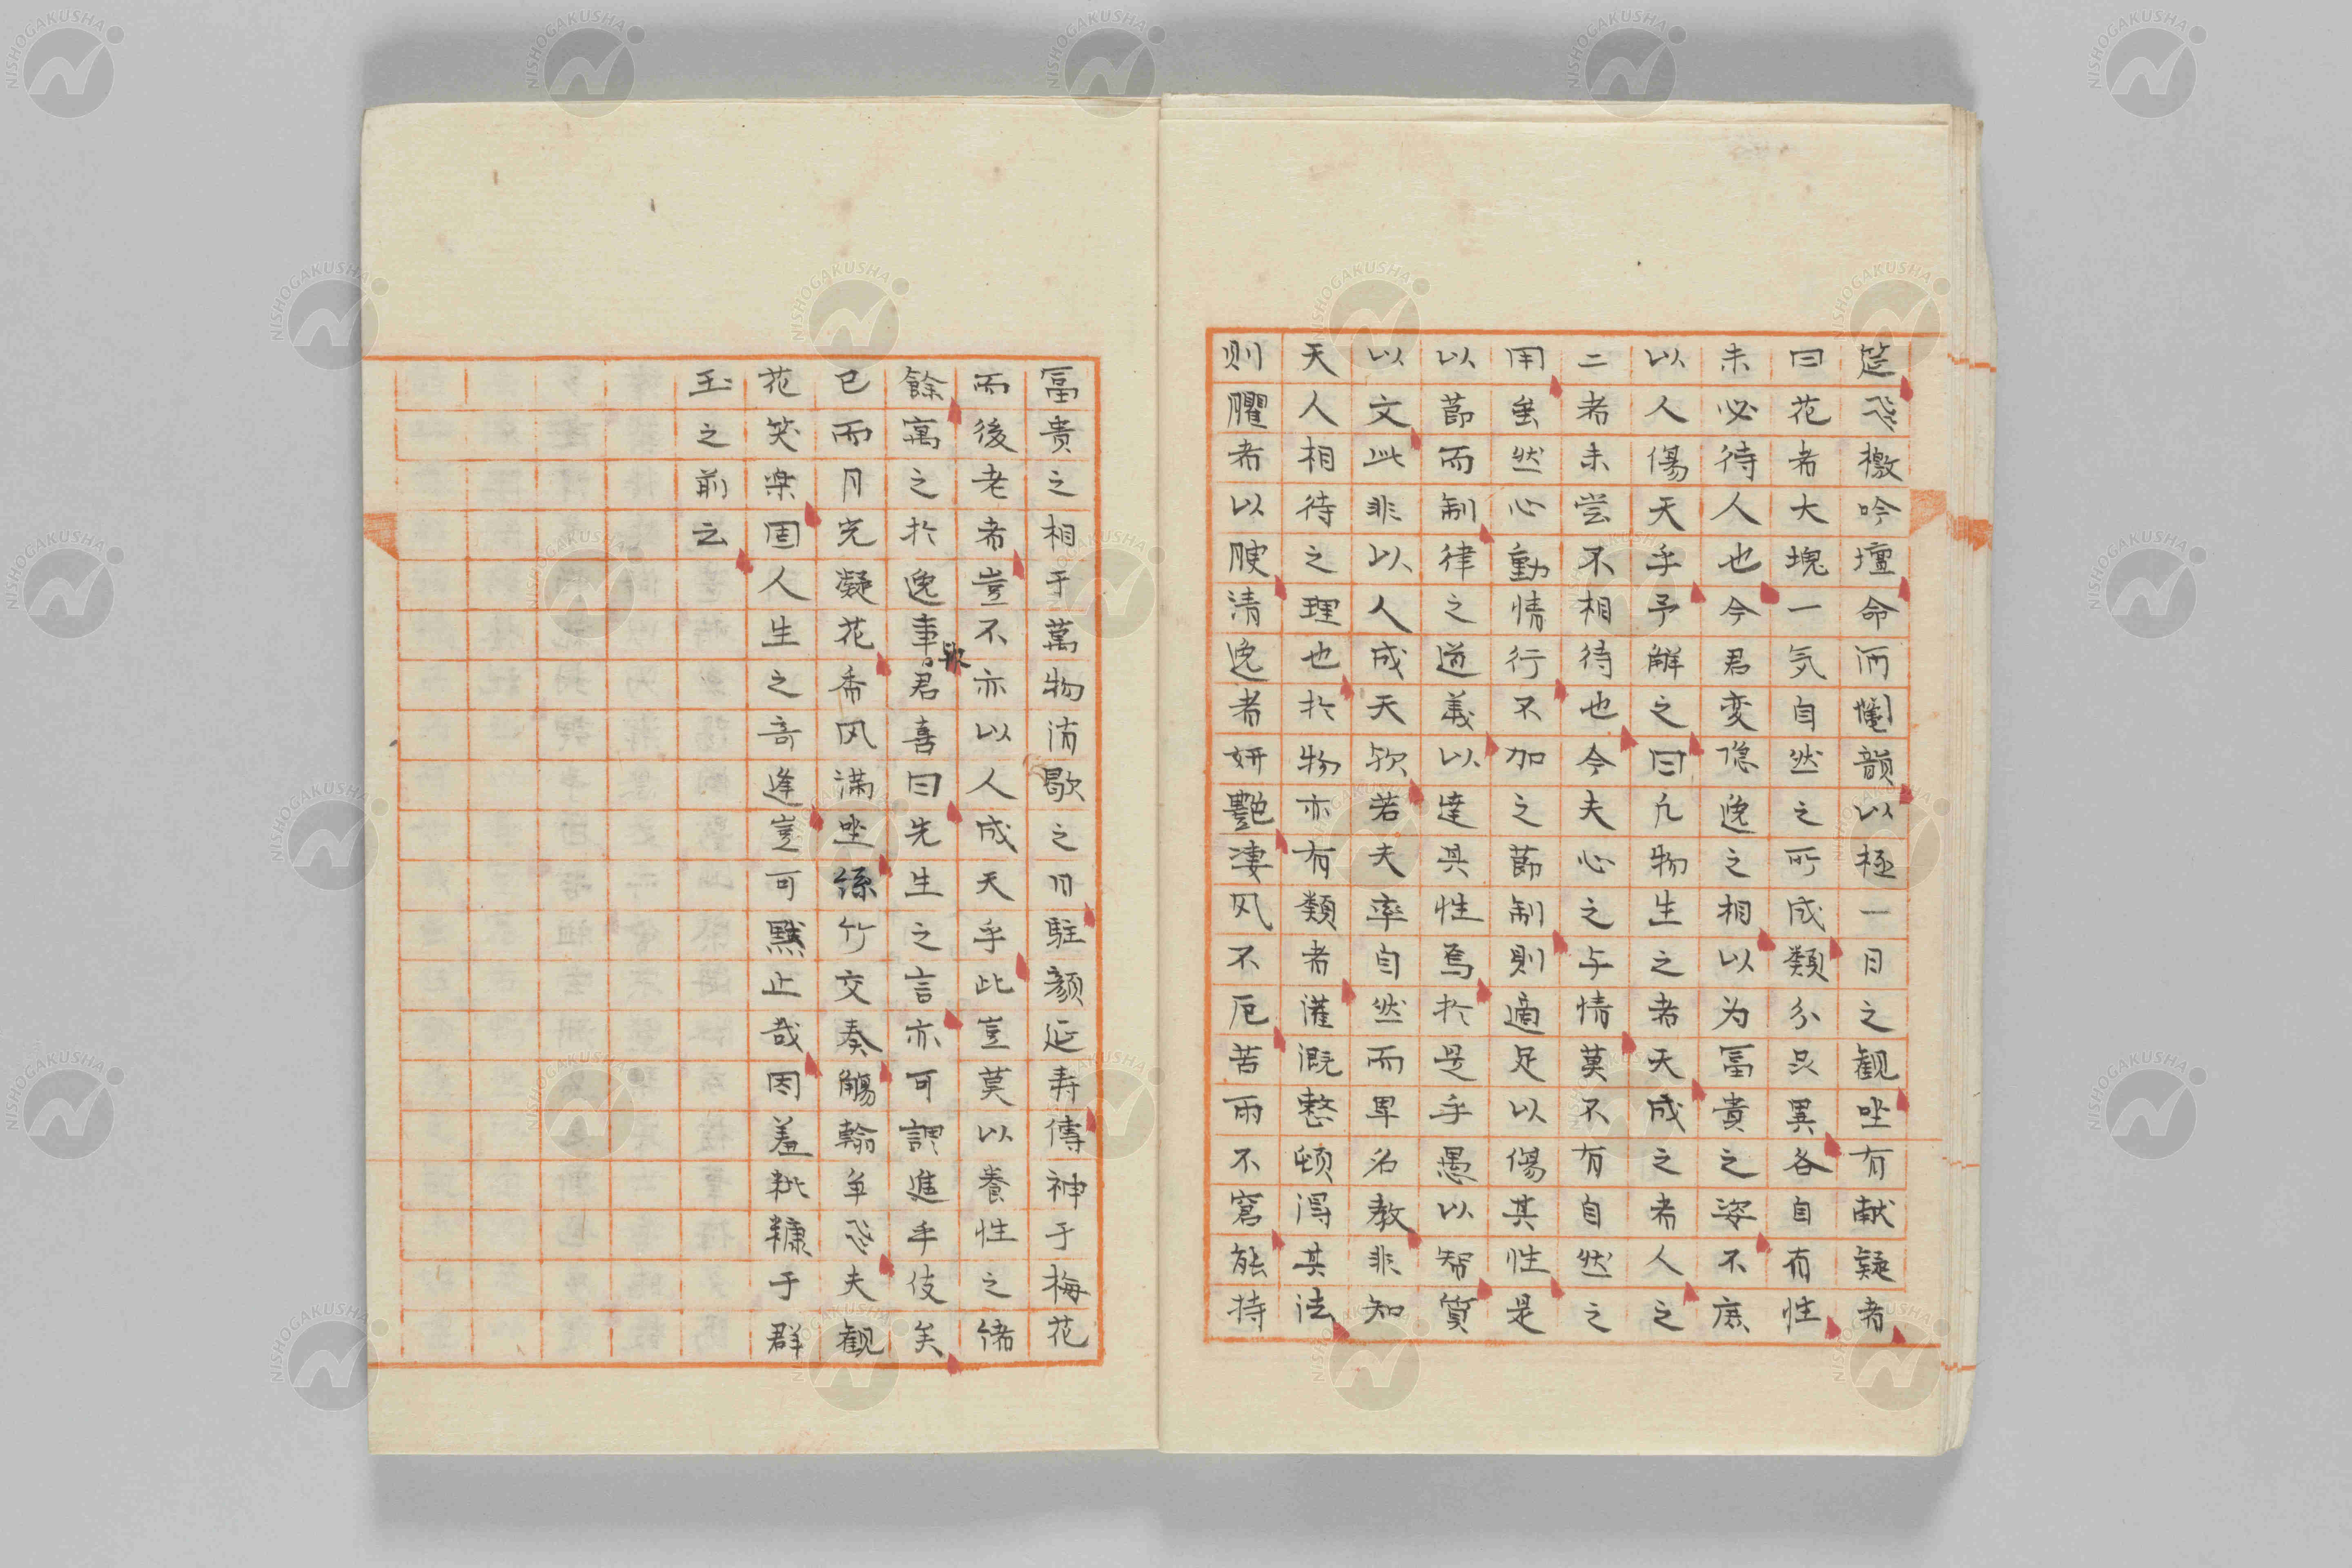 筵飛檄吟壇命而鬮韻以極一日之観坐有献疑者
曰花者大塊一気自然之所成類分品異各自有性
未必待人也今君変隠逸之相以为冨貴之姿不庶
以人傷天乎予解之曰凡物生之者天成之者人之
二者未尝不相待也今夫心之与情莫不有自然之
用虽然心動情行不加之節制則適足以傷其性是
以節而制律之道義以達其性焉於是乎愚以智質
以文此非以人成天欤若夫率自然而卑名教非知
天人相待之理也於物亦有類者灌溉整顿得其法
则臞者以腴清逸者妍艷凄风不厄苦雨不窘能持
冨贵之相于萬物消歇之日駐顔延寿傳神于梅花
而後老者豈不亦以人成天乎此豈莫以養性之绪
餘寓之於逸事欤君喜曰先生之言亦可謂進乎伎矣
已而月光凝花香风满坐絲竹交奏觴翰争飛夫観
花笑楽固人生之奇逢豈可黙止哉因羞秕糠于群
玉之前云
NISHOGAKUSHA